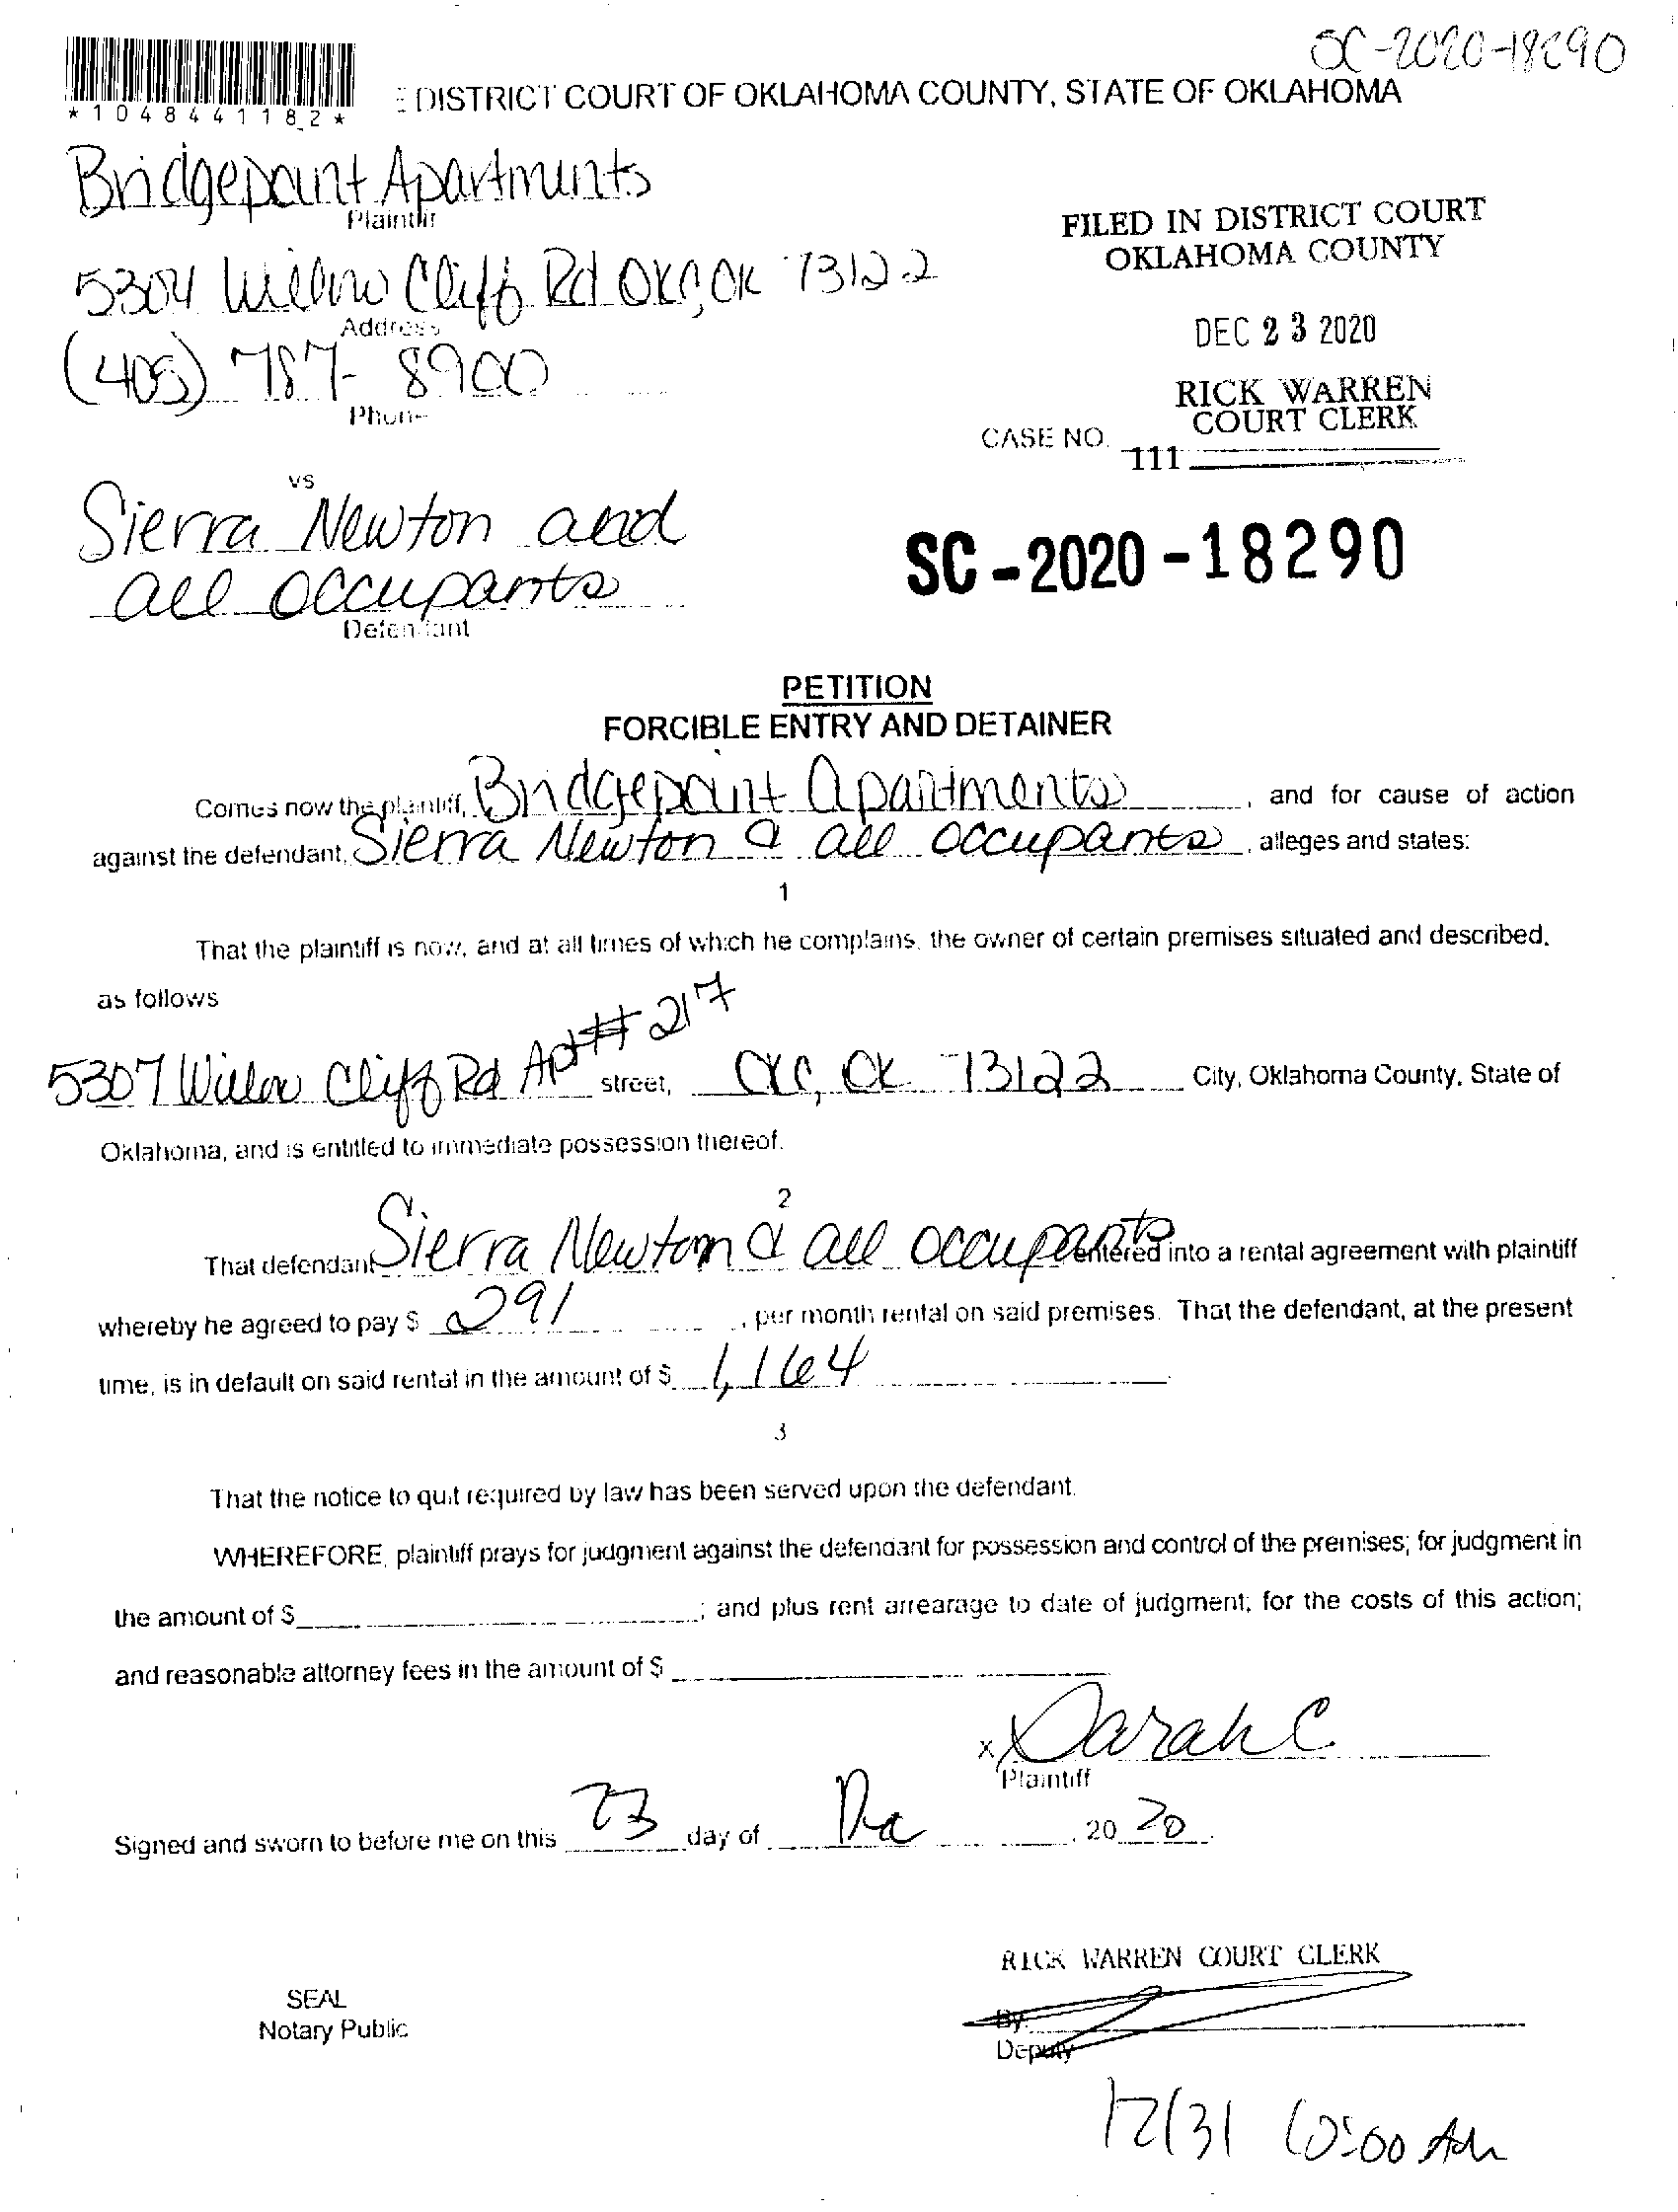 SC-2020-18290
*1048441182*
DISTRICT COURT OF OKLAHOMA COUNTY, STATE OF OKLAHOMA
Bridgepoint Apartments
Plaintiff
FILED IN DISTRICT COURT
OKLAHOMA COUNTY
5304 Willow Cliff Rd OKC, OK 73122
Address
DEC 23 2020
(405) 787-8900
Phone
RICK WARREN
COURT CLERK
CASE NO.
111
vs
Sierra Newton and
all occupants
Defendant
SC-2020-18290
PETITION
FORCIBLE ENTRY AND DETAINER
Comes now the plaintiff, Bridgepoint Apartments, and for cause of action
against the defendant, Sierra Newton & all occupants, alleges and states:
1
That the plaintiff is now, and at all times of which he complains, the owner of certain premises situated and described,
as follows
5307 Willow Cliff Rd Apt # 217 street, OKC, OK 73122 City, Oklahoma County, State of
Oklahoma, and is entitled to immediate possession thereof.
2
That defendant Sierra Newton & all occupants entered into a rental agreement with plaintiff
whereby he agreed to pay $ 291, per month rental on said premises. That the defendant, at the present
time, is in default on said rental in the amount of $ 1,164
3
That the notice to quit required by law has been served upon the defendant.
WHEREFORE, plaintiff prays for judgment against the defendant for possession and control of the premises; for judgment in
the amount of $ ; and plus rent arrearage to date of judgment; for the costs of this action;
and reasonable attorney fees in the amount of $
x Sarah C
Plaintiff
Signed and sworn to before me on this 23 day of Dec, 20 20.
RICK WARREN COURT CLERK
SEAL
Notary Public
By
Deputy
12/31 10:00 AM